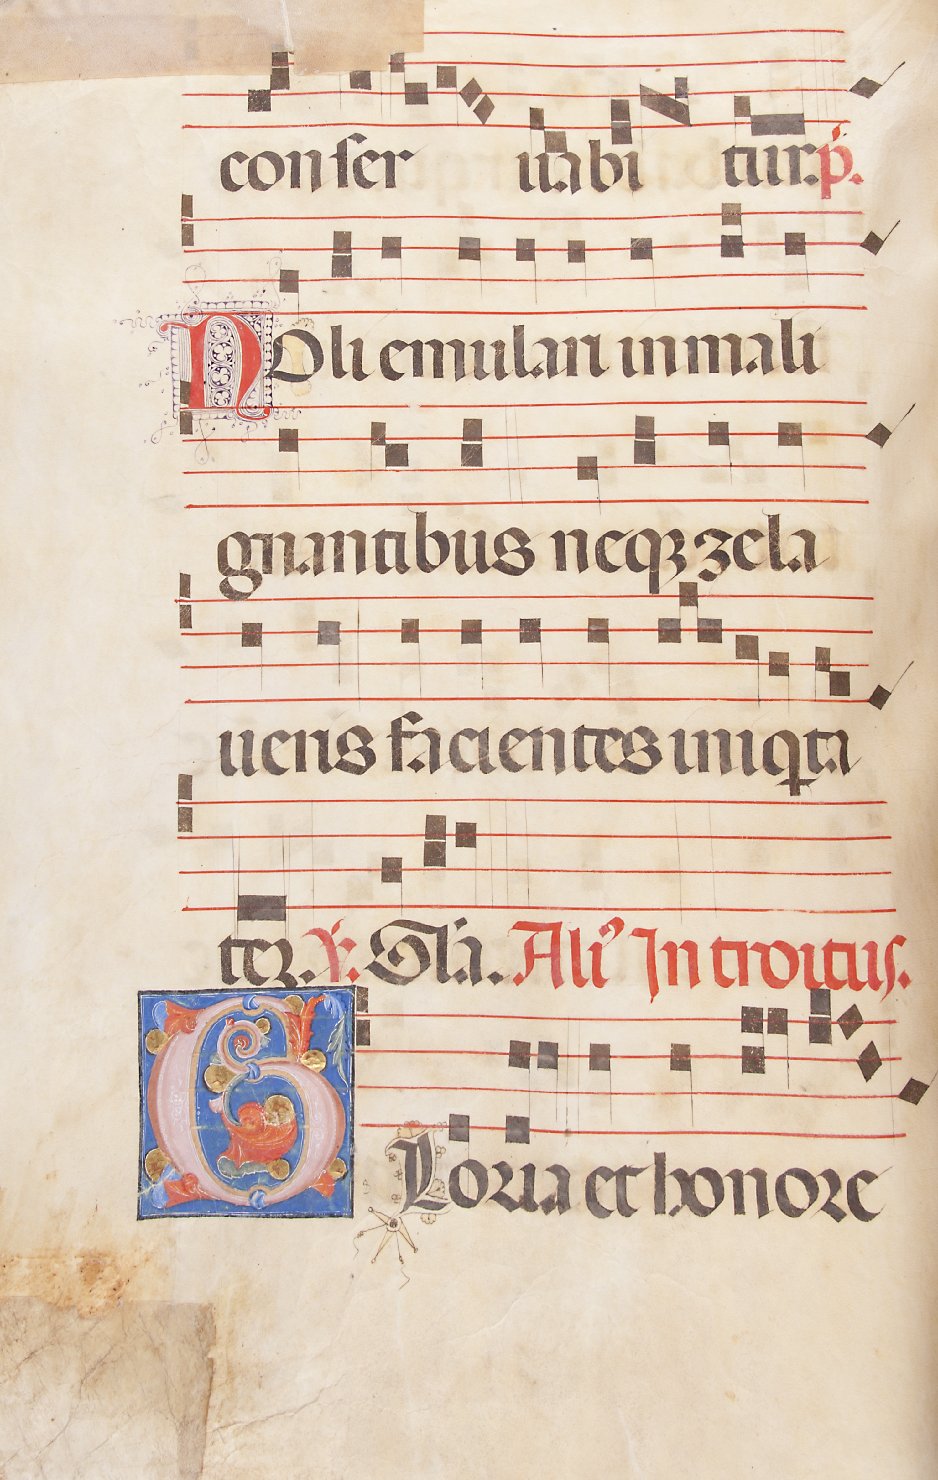 conser uabi tur. p̃.
Noli emulari in mali
gnantibus neqꝫ zela
ueris facientes iniqta
tez. ℣. Gl'a. Ali' Introitus.
GLoria et honore